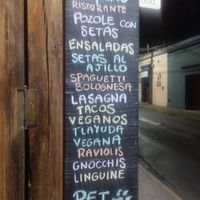 RISTORANTE
POZOLE CON
SETAS
ENSALADAS
SETAS AL
AJILLO
SPAGUETTI
BOLOGNESA
LASAGNA
TACOS
VEGANOS
TLAYUDA
VEGANA
RAVIOLIS
GNOCCHIS
LINGUINE
PET